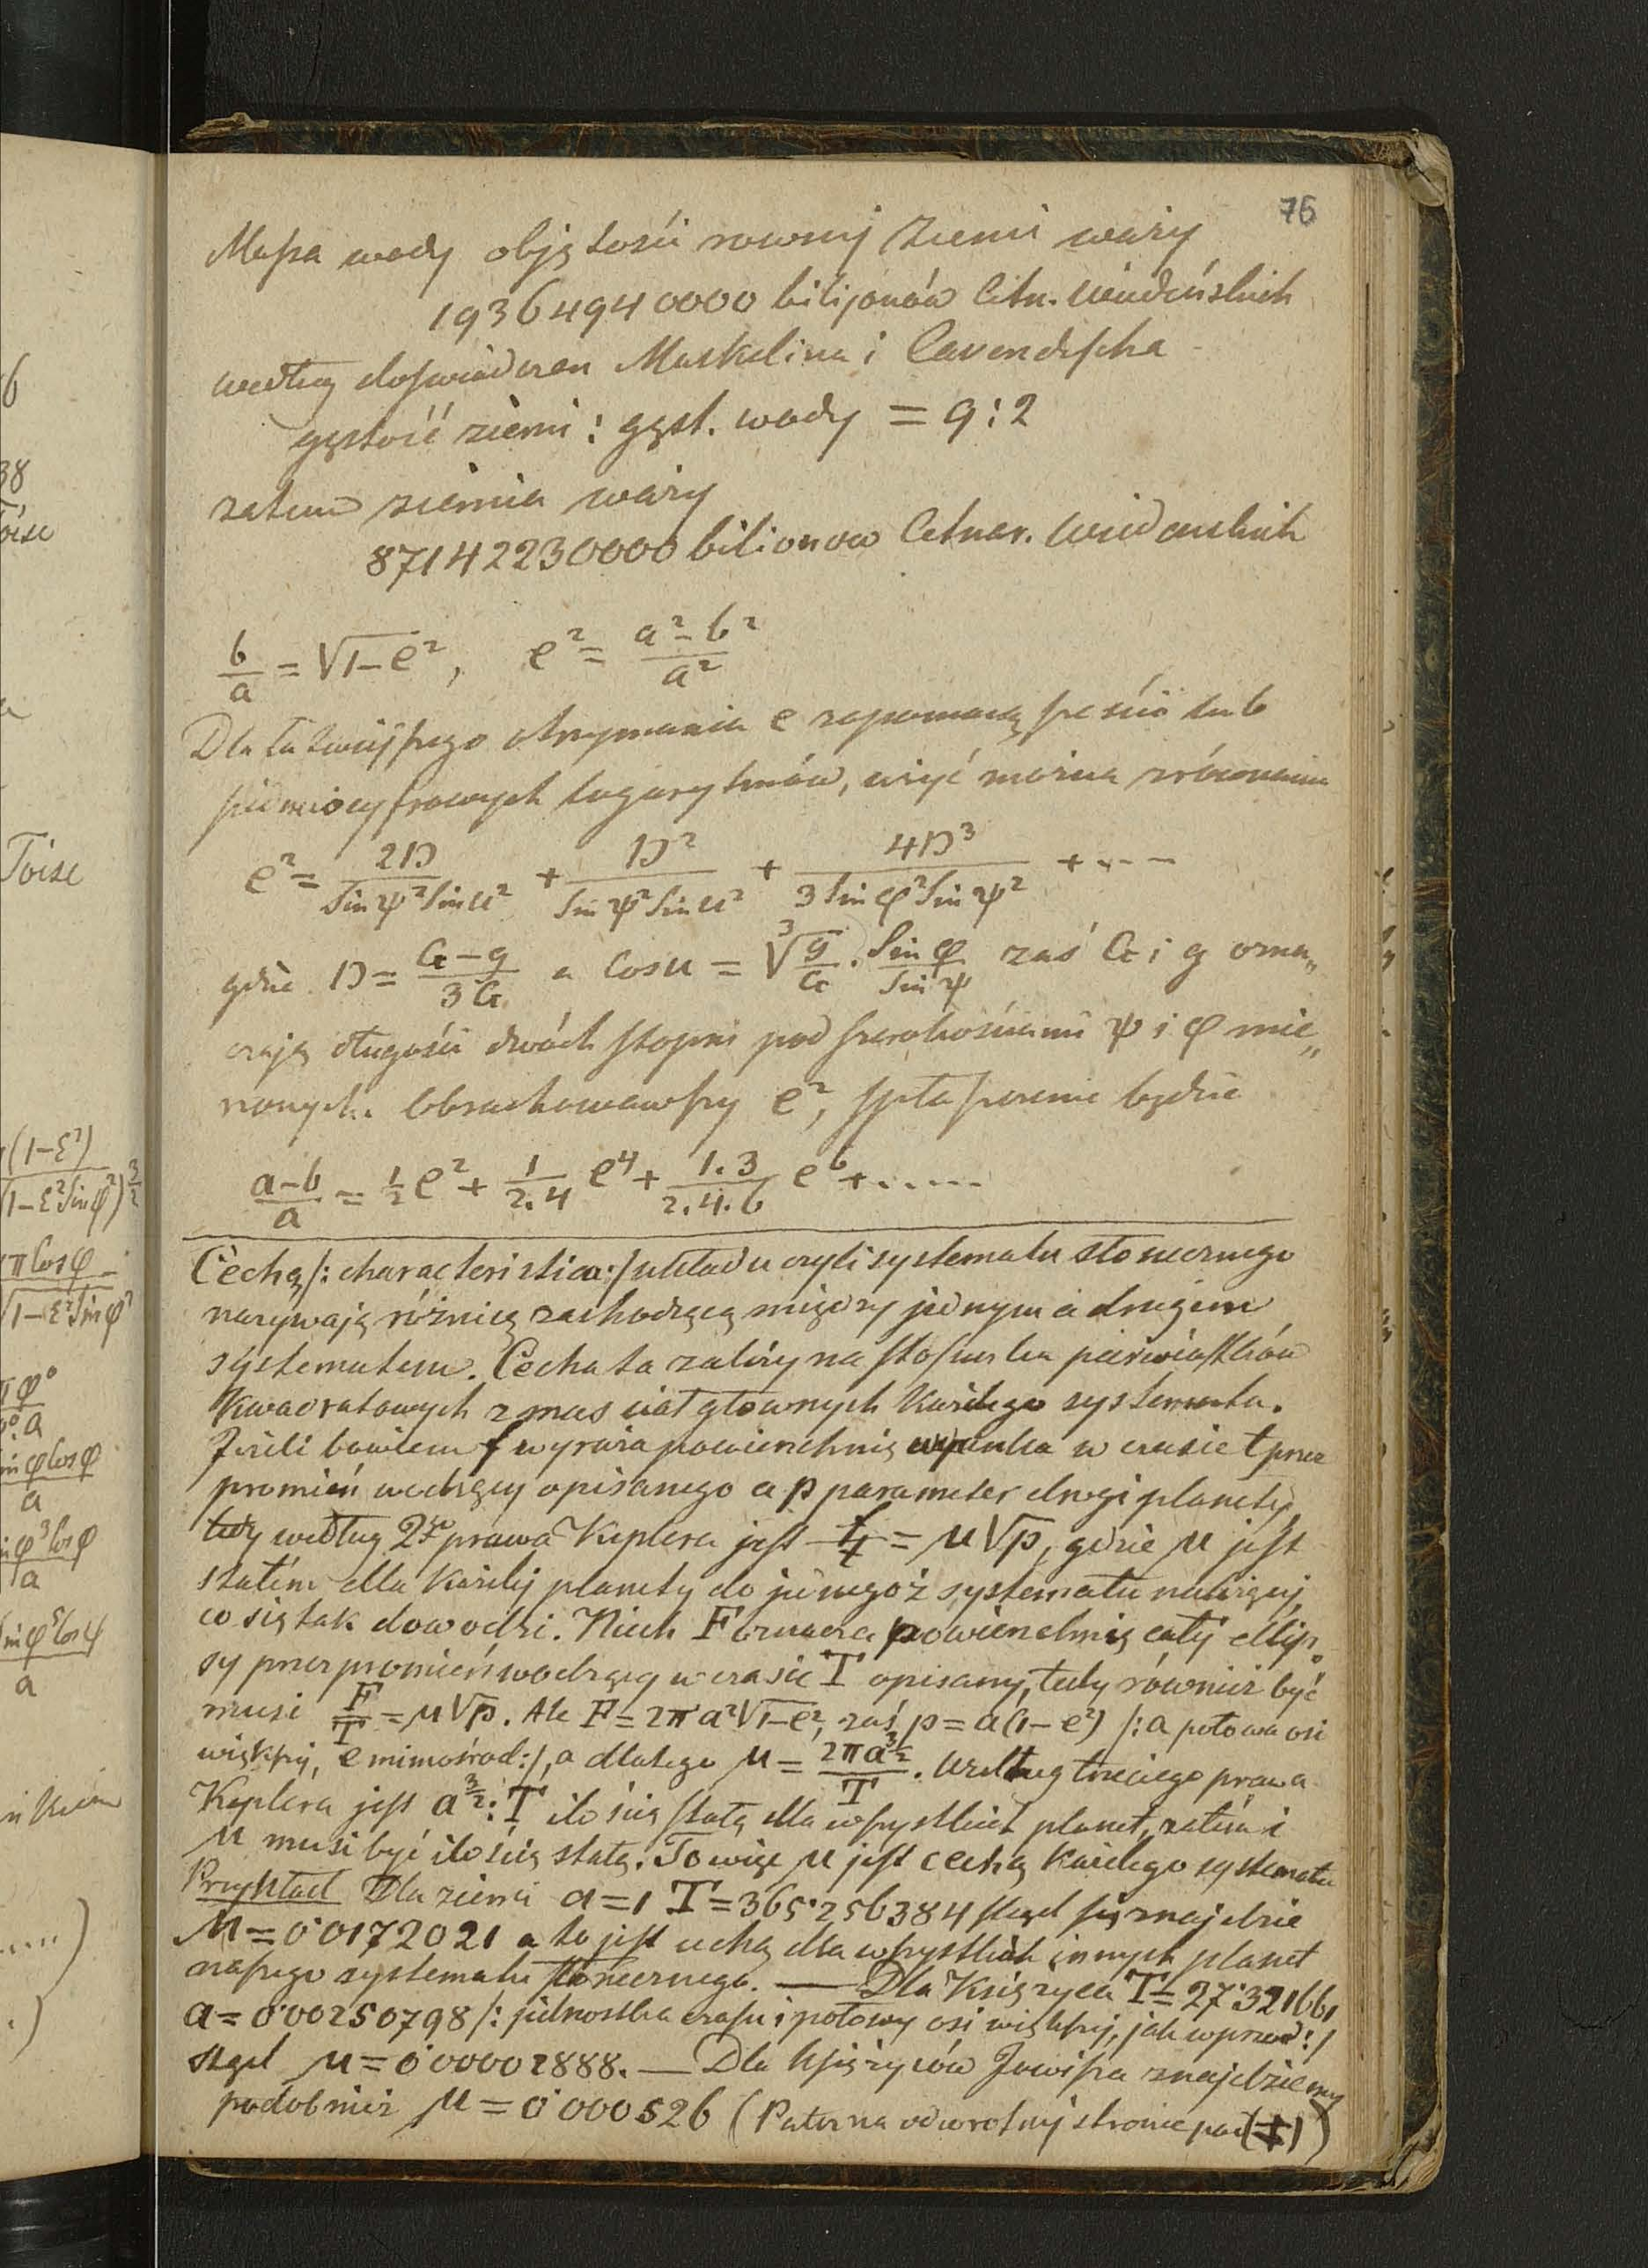 76
Massa wody objętości rownej Ziemi waży
19364940000 bilijonów Cetn. Wiedeńskich
według doświadczen Maskelina i Cavendischa
gęstość ziemi : gęst. wody = 9 : 2
zatem ziemia waży
87142230000 bilionow Cetnar. Wiedenskich
b/a = √1-e², e² = a²-b²/a²
Dla łatwiejszego otrzymania e zapomocą sześcio lub
siedmiocyfrowych logarytmów, użyć można zrównania
e² = 2D/Sinψ²Sinu² + D²/Sinψ²Sinu² + 4D³/3Sinφ²Sinψ² + ....
gdzie D = G-g/3G a Cosu = ∛g/G . Sinφ/Sinψ zaś G i g ozna„
czają długości dwóch stopni pod szerokościami ψ i φ mie„
rzonych. Obrachowawszy e², spłaszczenie będzie
a-b/a = ½e² + 1/2.4 e⁴ + 1.3/2.4.6 e⁶ + .....
Cechą /: characteristica :/ układu czyli systematu słonecznego
nazywają różnicę zachodzącą między jednym a drugiem
systematem. Cecha ta zależy na stosunku pierwiastków
kwadratowych z mas ciał głownych każdego systematu.
Jeżeli bowiem f wyraża powierzchnię wycinka w czasie t przez
promień wodzący opisanego a p parameter drogi planety,
tedy według 2go prawa Keplera jest f/t = μ√p, gdzie μ jest
stałém dla każdej planety do jednegoż systematu należącej,
co się tak dowodzi. Niech F oznacza powierzchnię całej ellip„
sy przez promień wodzący w czasie T opisanej, tedy również być
musi F/T = μ√p. Ale F = 2πa²√1-e², zaś p = a(1-e²) /: a połowa osi
większej, e mimośrod :/, a dlatego μ = 2πa^3/2 / T. Według trzeciego prawa
Keplera jest a^3/2 : T ilością stałą dla wszystkich planet, zatém i
μ musi być ilością stałą. To więc μ jest cechą każdego systematu
Przykład Dla ziemi a = 1 T = 365˙256384 stąd się znajdzie
μ = 0˙0172021 a to jest cechą dla wszystkich innych planet
naszego systematu słonecznego. — Dla Księżyca T = 27˙321661
a = 0˙00250798 /: jednostka czasu i połowy osi większej, jak wprzód :/
stąd μ = 0˙00002888. — Dla księżyców Jowisza znajdziemy
podobnież μ = 0˙000526 (Patrz na odwrotnej stronie pod (‡))
38
Toise
(1-ε²)
(1-ε²Sinφ²)^3/2
πCosφ
√1-ε²Sinφ²
a
a
a
a